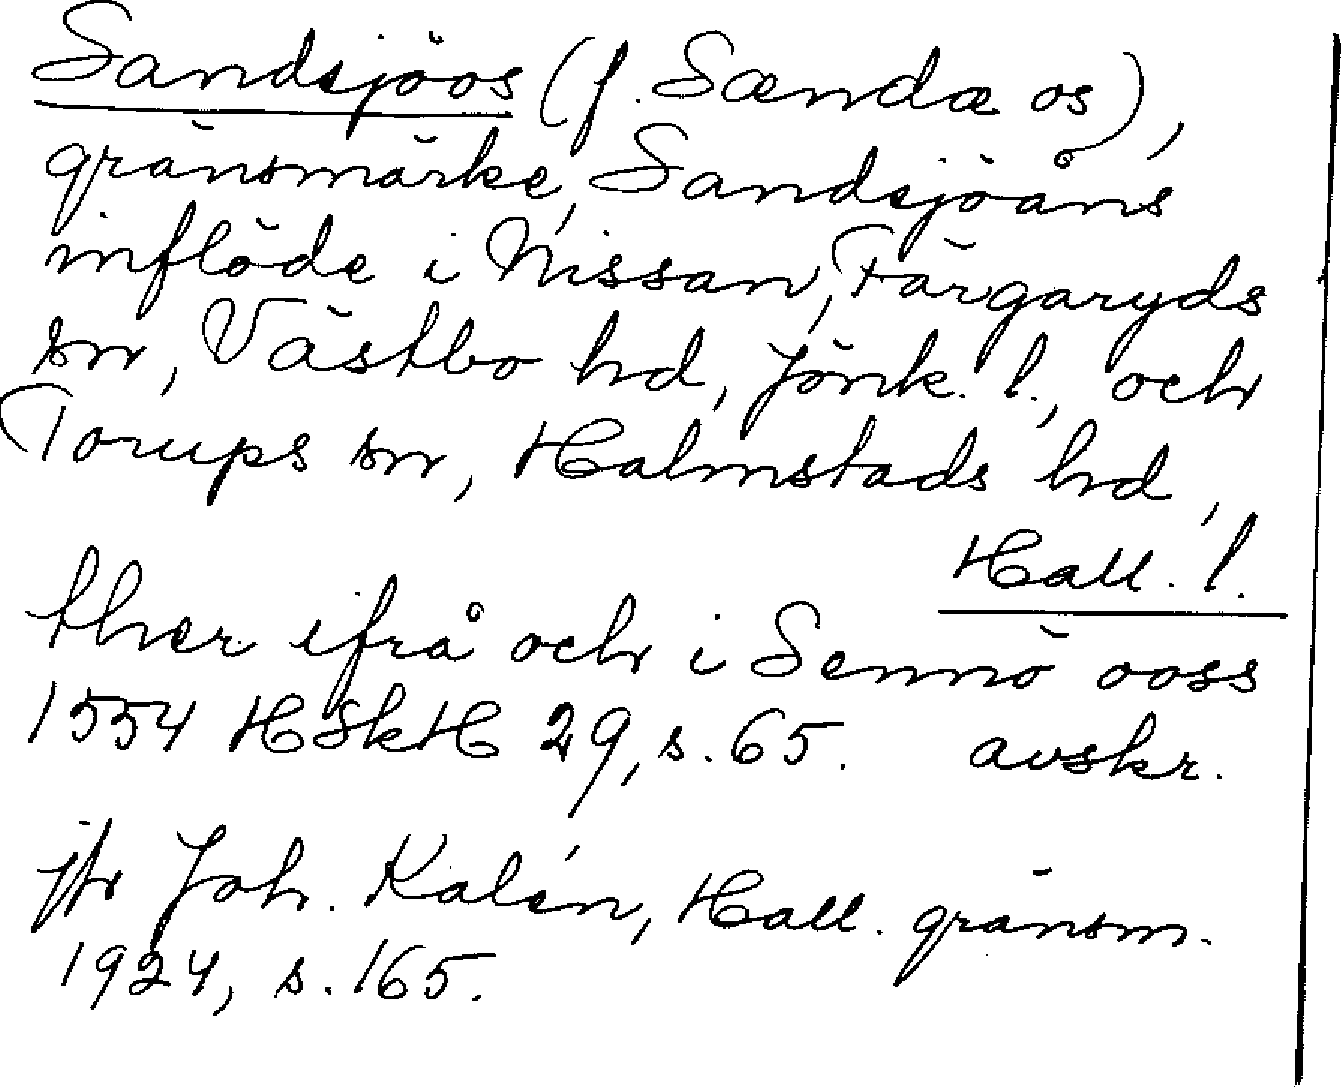 Sandsjöos (f. Sændæ os),
gränsmärke, Sandsjöåns
inflöde i Nissan, Färgaryds
sn, Västbo hd, Jönk. l., och
Torups sn, Halmstads hd,
Hall. l.
ther ifrå och i Sennö ooss
1554 HSkH 29, s. 65. avskr.
jfr Joh. Kalén, Hall. gränsm.
1924, s. 165.